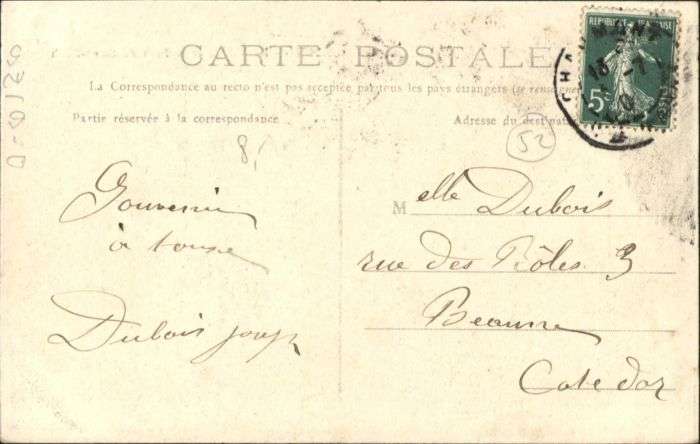 CARTE POSTALE
La Correspondance au recto n'est pas acceptée par tous les pays étrangers (se renseigner
Partie réservée à la correspondance
Adresse du destinat
RÉPUBLIQUE FRANÇAISE
5c
CHAUMONT
13 -7
10
52
8,
Souvenir
à tous
Dubois
Melle Dubois
rue des Rôles 3
Beaune
Cote dor